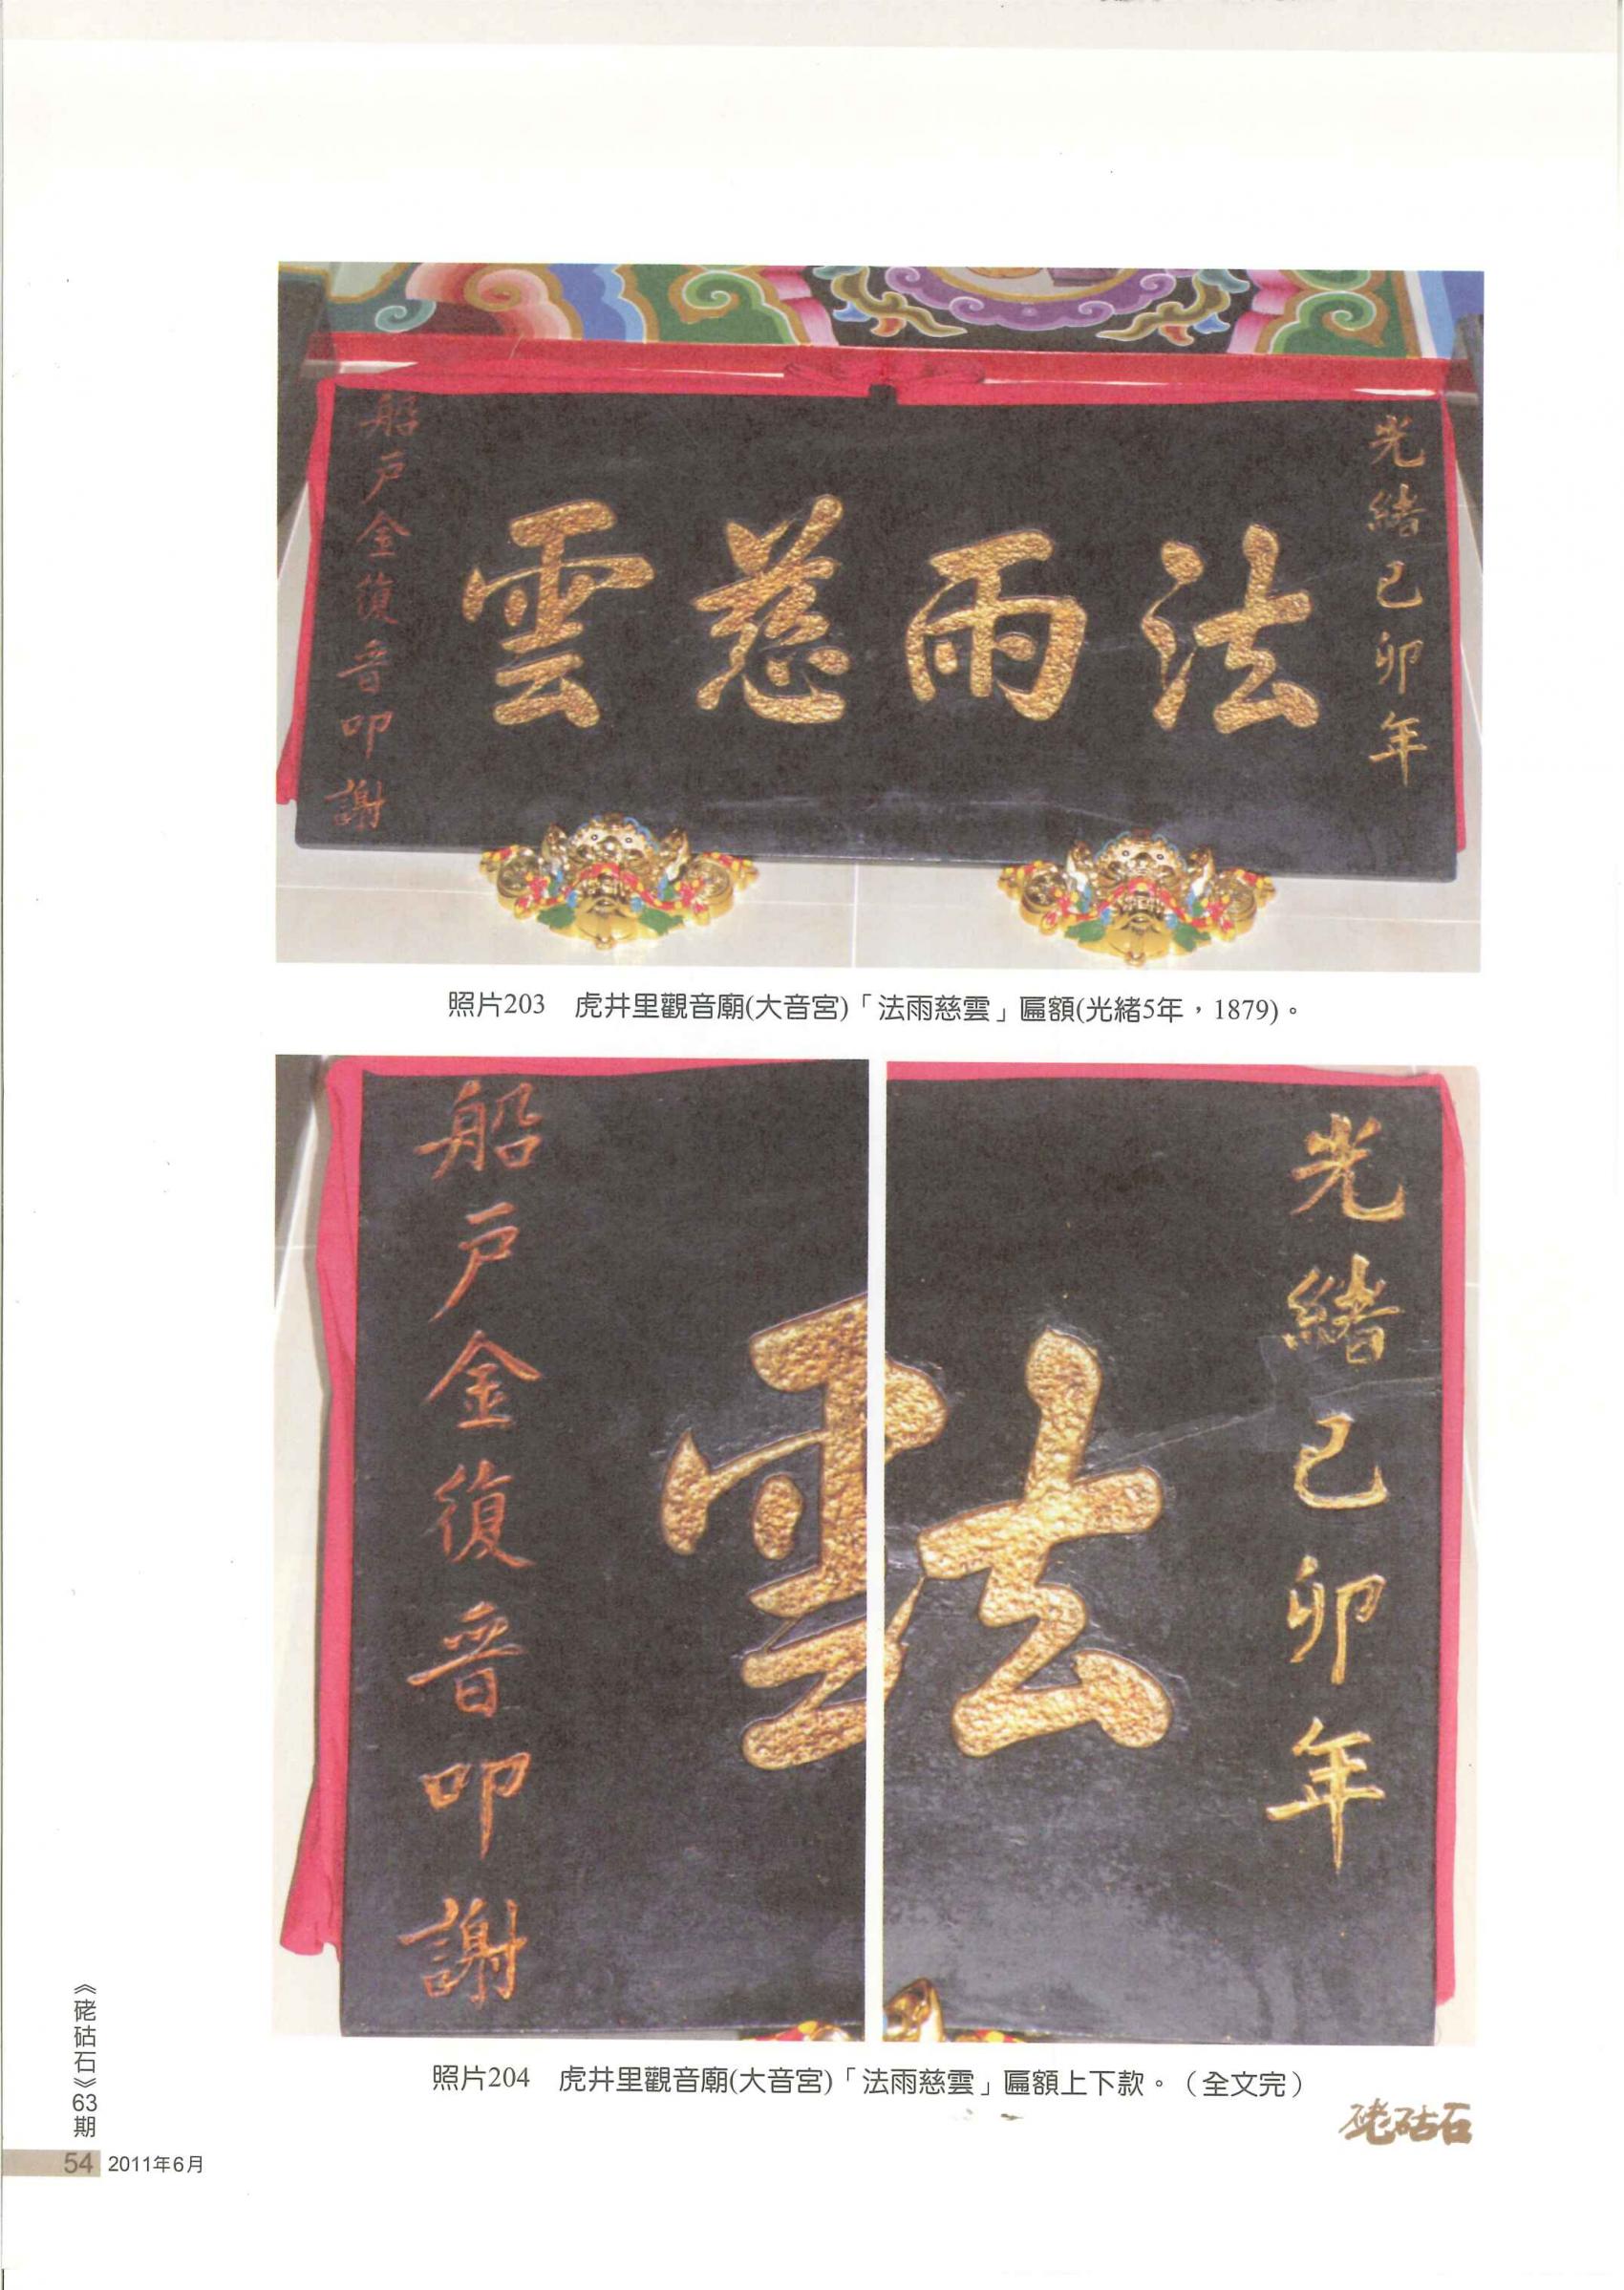 光緒己卯年
法雨慈雲
船戶金復晋叩謝
照片203 虎井里觀音廟(大音宮)「法雨慈雲」匾額(光緒5年，1879)。
船戶金復晋叩謝
雲
法
光緒己卯年
照片204 虎井里觀音廟(大音宮)「法雨慈雲」匾額上下款。（全文完）
硓𥑮石
《硓𥑮石》63期
54 2011年6月